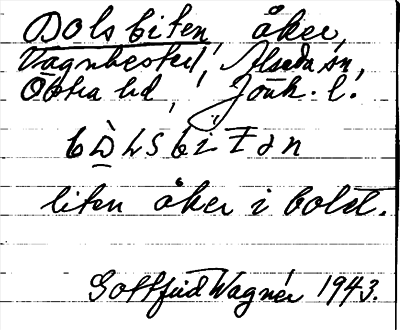 Dolsbiten, åker,
Vagnhester, Alseda sn,
Östra hd, Jönk. l.
bὰLsbiTən
liten åker i bolet.
Gottfrid Wagnér 1943.